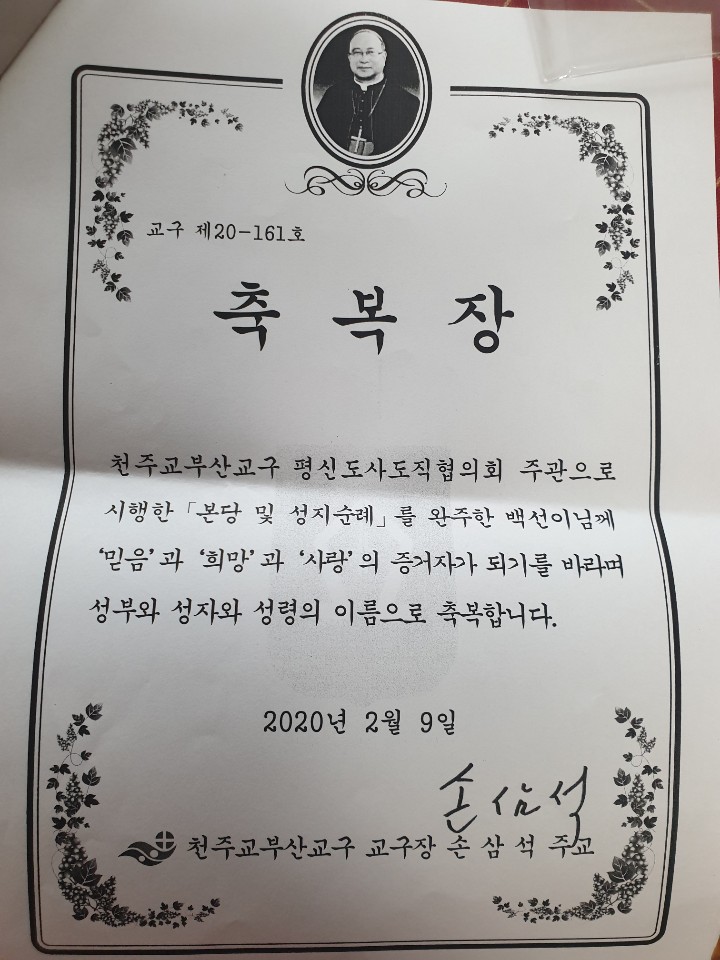 교구 제20-161호
축 복 장
천주교부산교구 평신도사도직협의회 주관으로
시행한 「본당 및 성지순례」를 완주한 백선이님께
'믿음'과 '희망'과 '사랑'의 증거자가 되기를 바라며
성부와 성자와 성령의 이름으로 축복합니다.
2020년 2월 9일
손삼석
천주교부산교구 교구장 손 삼 석 주교